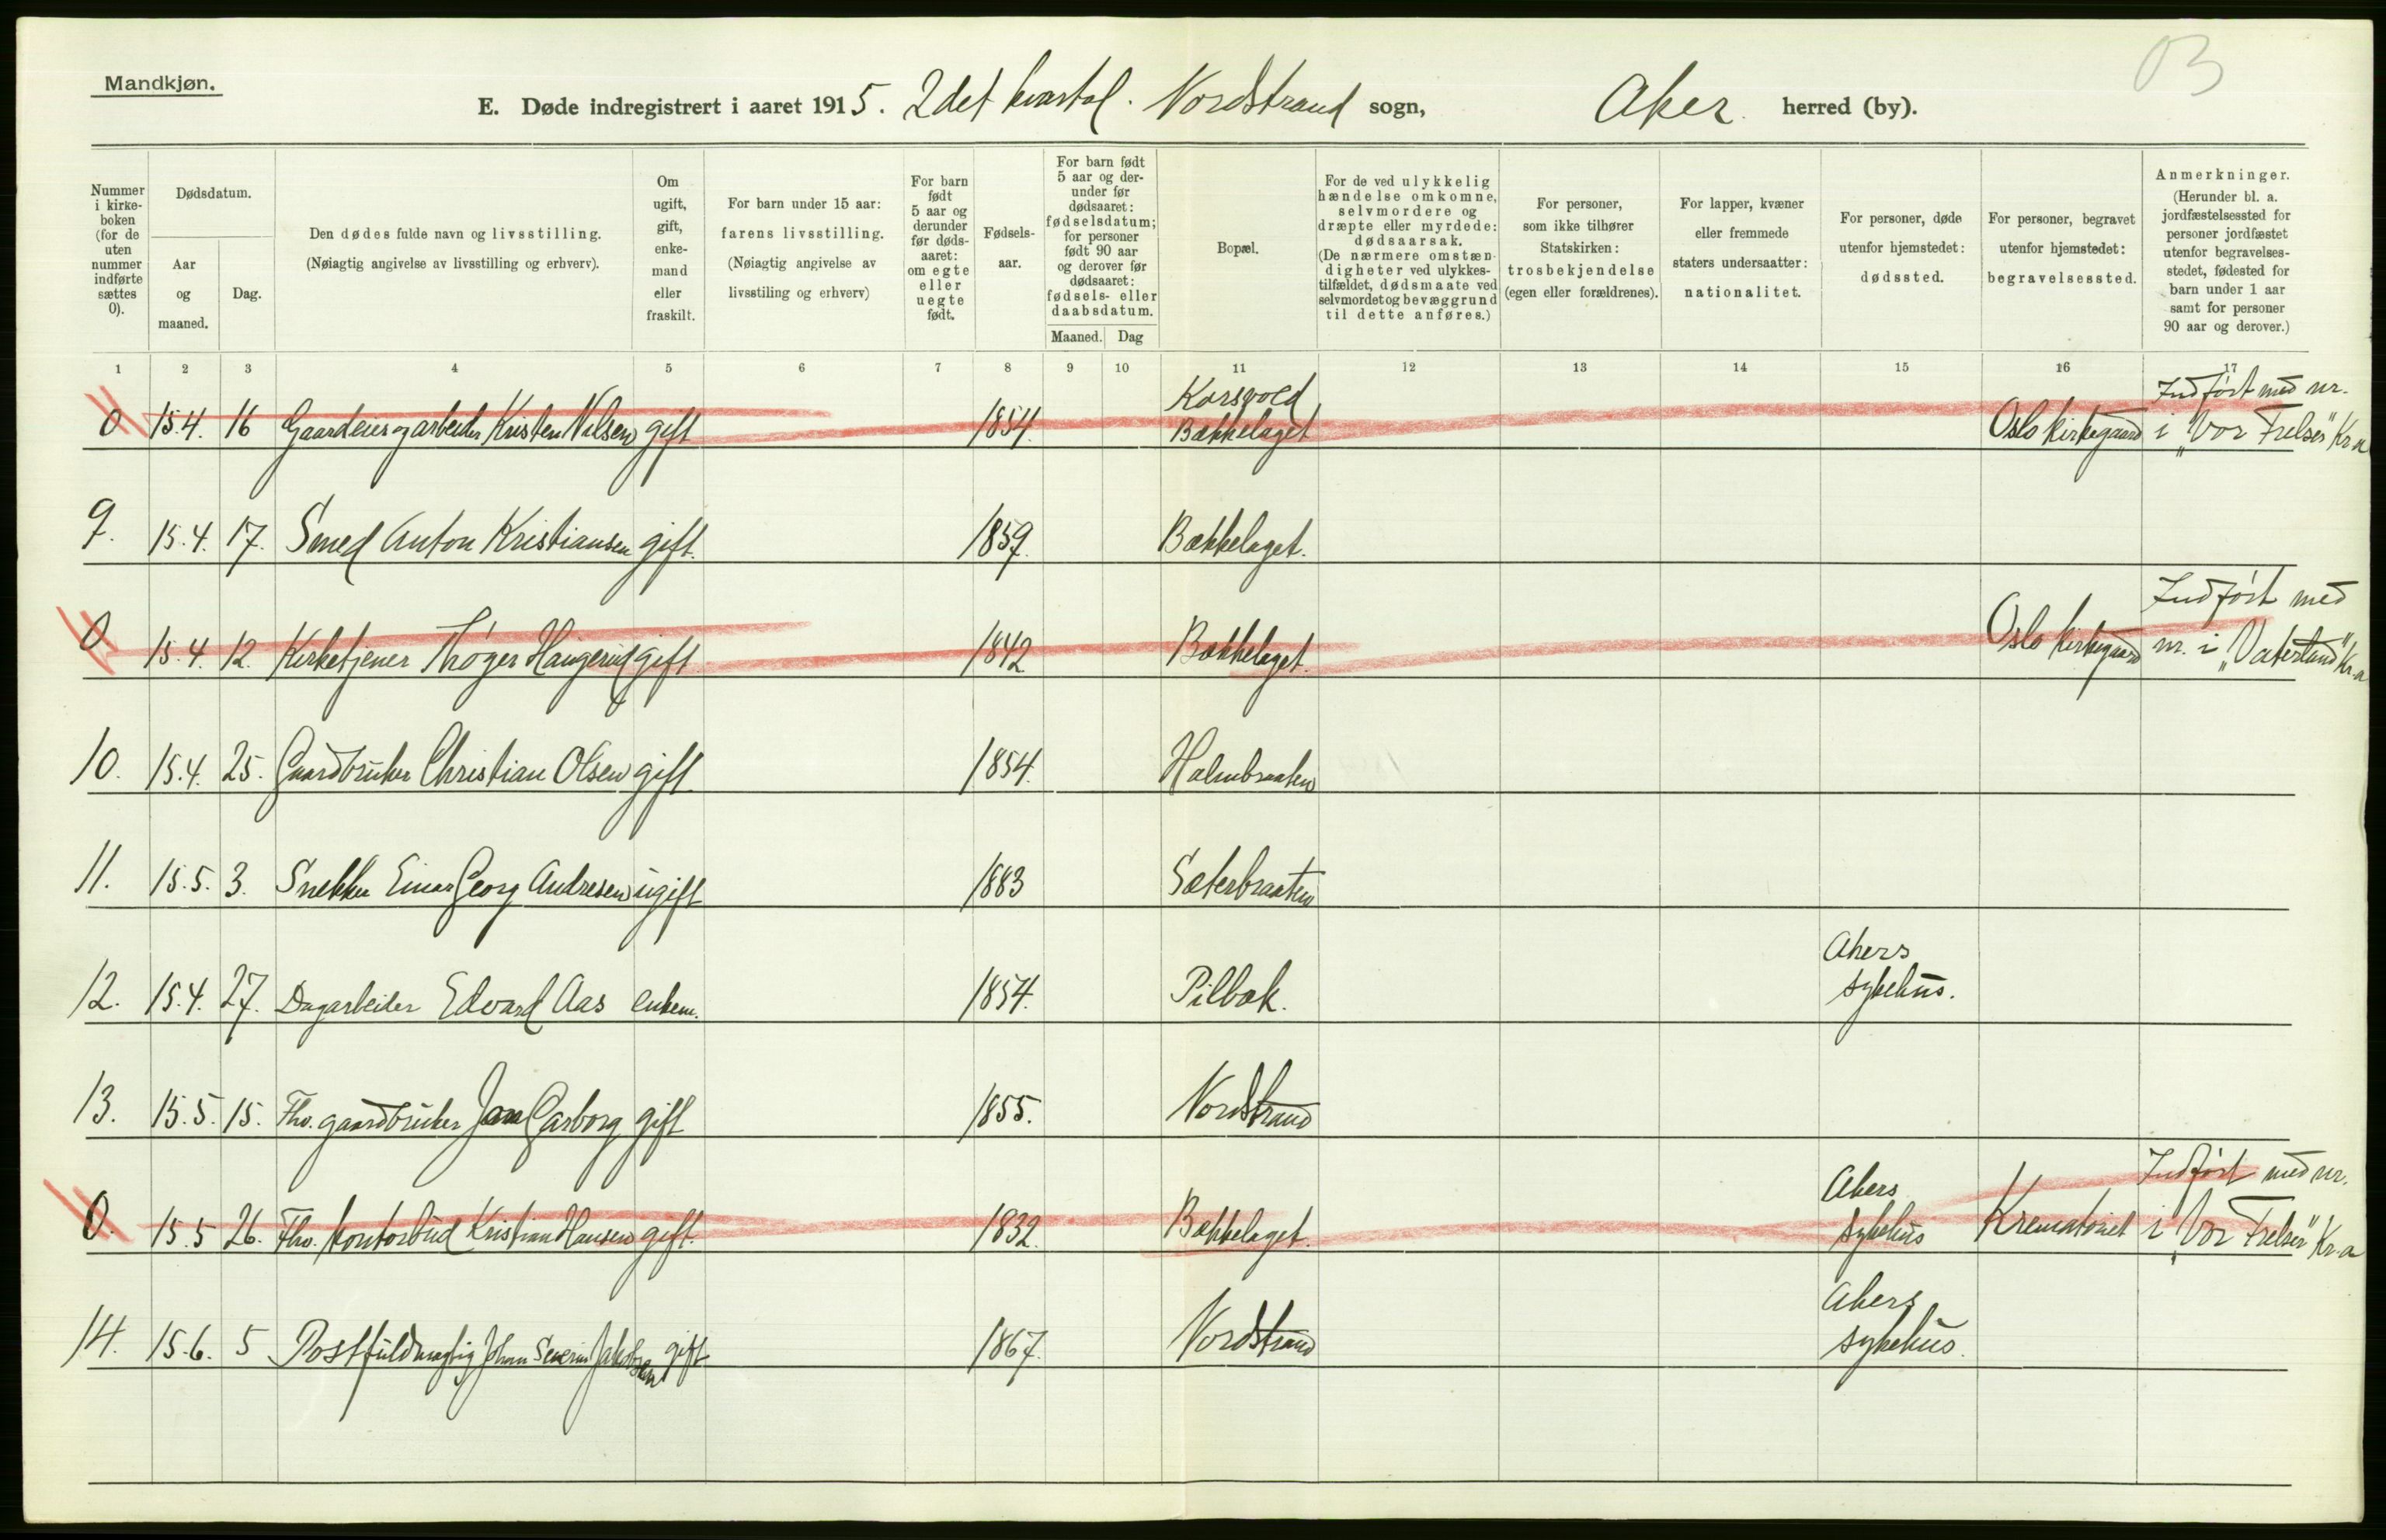 Mandkjøn.
03
E. Døde indregistrert i aaret 1915. 2det kvartal. Nordstrand sogn, Aker herred (by).
Nummer i kirke-boken (for de uten nummer indførte sættes 0).
Dødsdatum.
Aar og maaned.
Dag.
Den dødes fulde navn og livsstilling.
(Nøiagtig angivelse av livsstilling og erhverv).
Om ugift, gift, enke-mand eller fraskilt.
For barn under 15 aar:
farens livsstilling.
(Nøiagtig angivelse av livsstiling og erhverv)
For barn født 5 aar og derunder før døds-aaret: om egte eller uegte født.
Fødsels-aar.
For barn født 5 aar og der-under før dødsaaret: fødselsdatum; for personer født 90 aar og derover før dødsaaret: fødsels- eller daabsdatum.
Maaned. Dag
Bopæl.
For de ved ulykkelig hændelse omkomne, selvmordere og dræpte eller myrdede: dødsaarsak.
(De nærmere omstæn-digheter ved ulykkes-tilfældet, dødsmaate ved selvmordet og bevæggrund til dette anføres.)
For personer, som ikke tilhører Statskirken: trosbekjendelse (egen eller forældrenes).
For lapper, kvæner eller fremmede staters undersaatter: nationalitet.
For personer, døde utenfor hjemstedet: dødssted.
For personer, begravet utenfor hjemstedet: begravelsessted.
Anmerkninger.
(Herunder bl. a. jordfæstelsessted for personer jordfæstet utenfor begravelses-stedet, fødested for barn under 1 aar samt for personer 90 aar og derover.)
1 2 3 4 5 6 7 8 9 10 11 12 13 14 15 16 17
Korsvold Indført med nr.
0 15.4. 16 Gaardeier og arbeider Kristen Nilsen gift 1854. Bækkelaget Oslo kirkegaard i „Vor Frelser" Kr.a
9. 15.4. 17. Smed Anton Kristiansen gift. 1859. Bækkelaget.
Indført med
0 15.4. 12. Kirketjener Thøger Haugerud gift 1842 Bækkelaget. Oslo kirkegaard nr. i „Vaterland" Kr.a
10. 15.4. 25. Gaardbruker Christian Olsen gift 1854. Holmbraaten
11. 15.5. 3. Snekker Einar Georg Andresen ugift 1883 Sæterbraaten
Akers
12. 15.4. 27. Dagarbeider Edvard Aas enkem. 1854. Pilbæk. sykehus.
13. 15.5. 15. Fhv. gaardbruker Jon Garborg gift 1855. Nordstrand
Akers Indført med nr.
0. 15.5 26. Fhv. kontorbud Kristian Hansen gift. 1832. Bækkelaget. sykehus Krematoriet i „Vor Frelser" Kr.a
Akers
14. 15.6. 5 Postfuldmægtig Johan Severin Jakobsen gift 1867. Nordstrand sykehus.